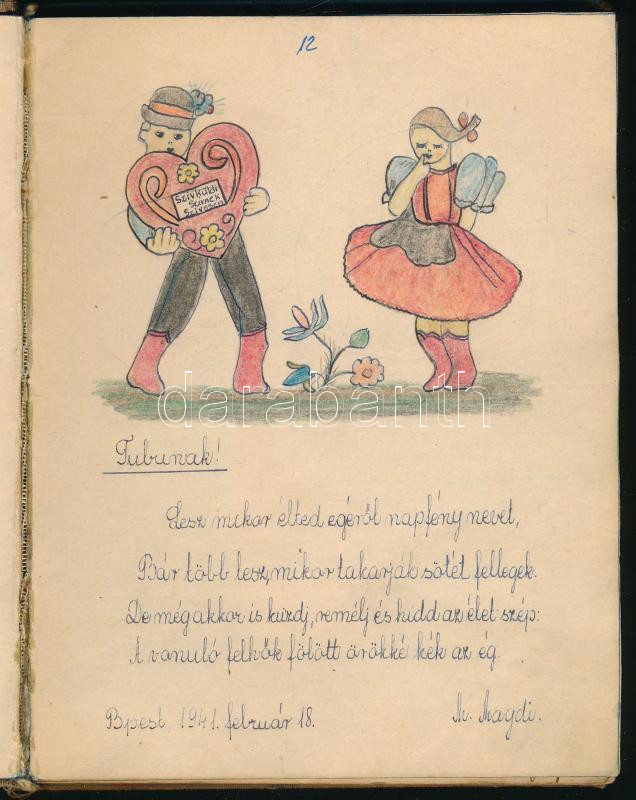 12
Szivküldi
Szivnek
Szivesen
darabanth
Tubinak!
Lesz mikor élted egéről napfény nevet,
Bár több lesz, mikor takarják sötét fellegek.
De mégakkor is kuzdj, remélj és hidd az élet szép:
A vanuló felhők fölött örökké kék az ég.
Bpest, 1941. február 18.
M. Magdi.